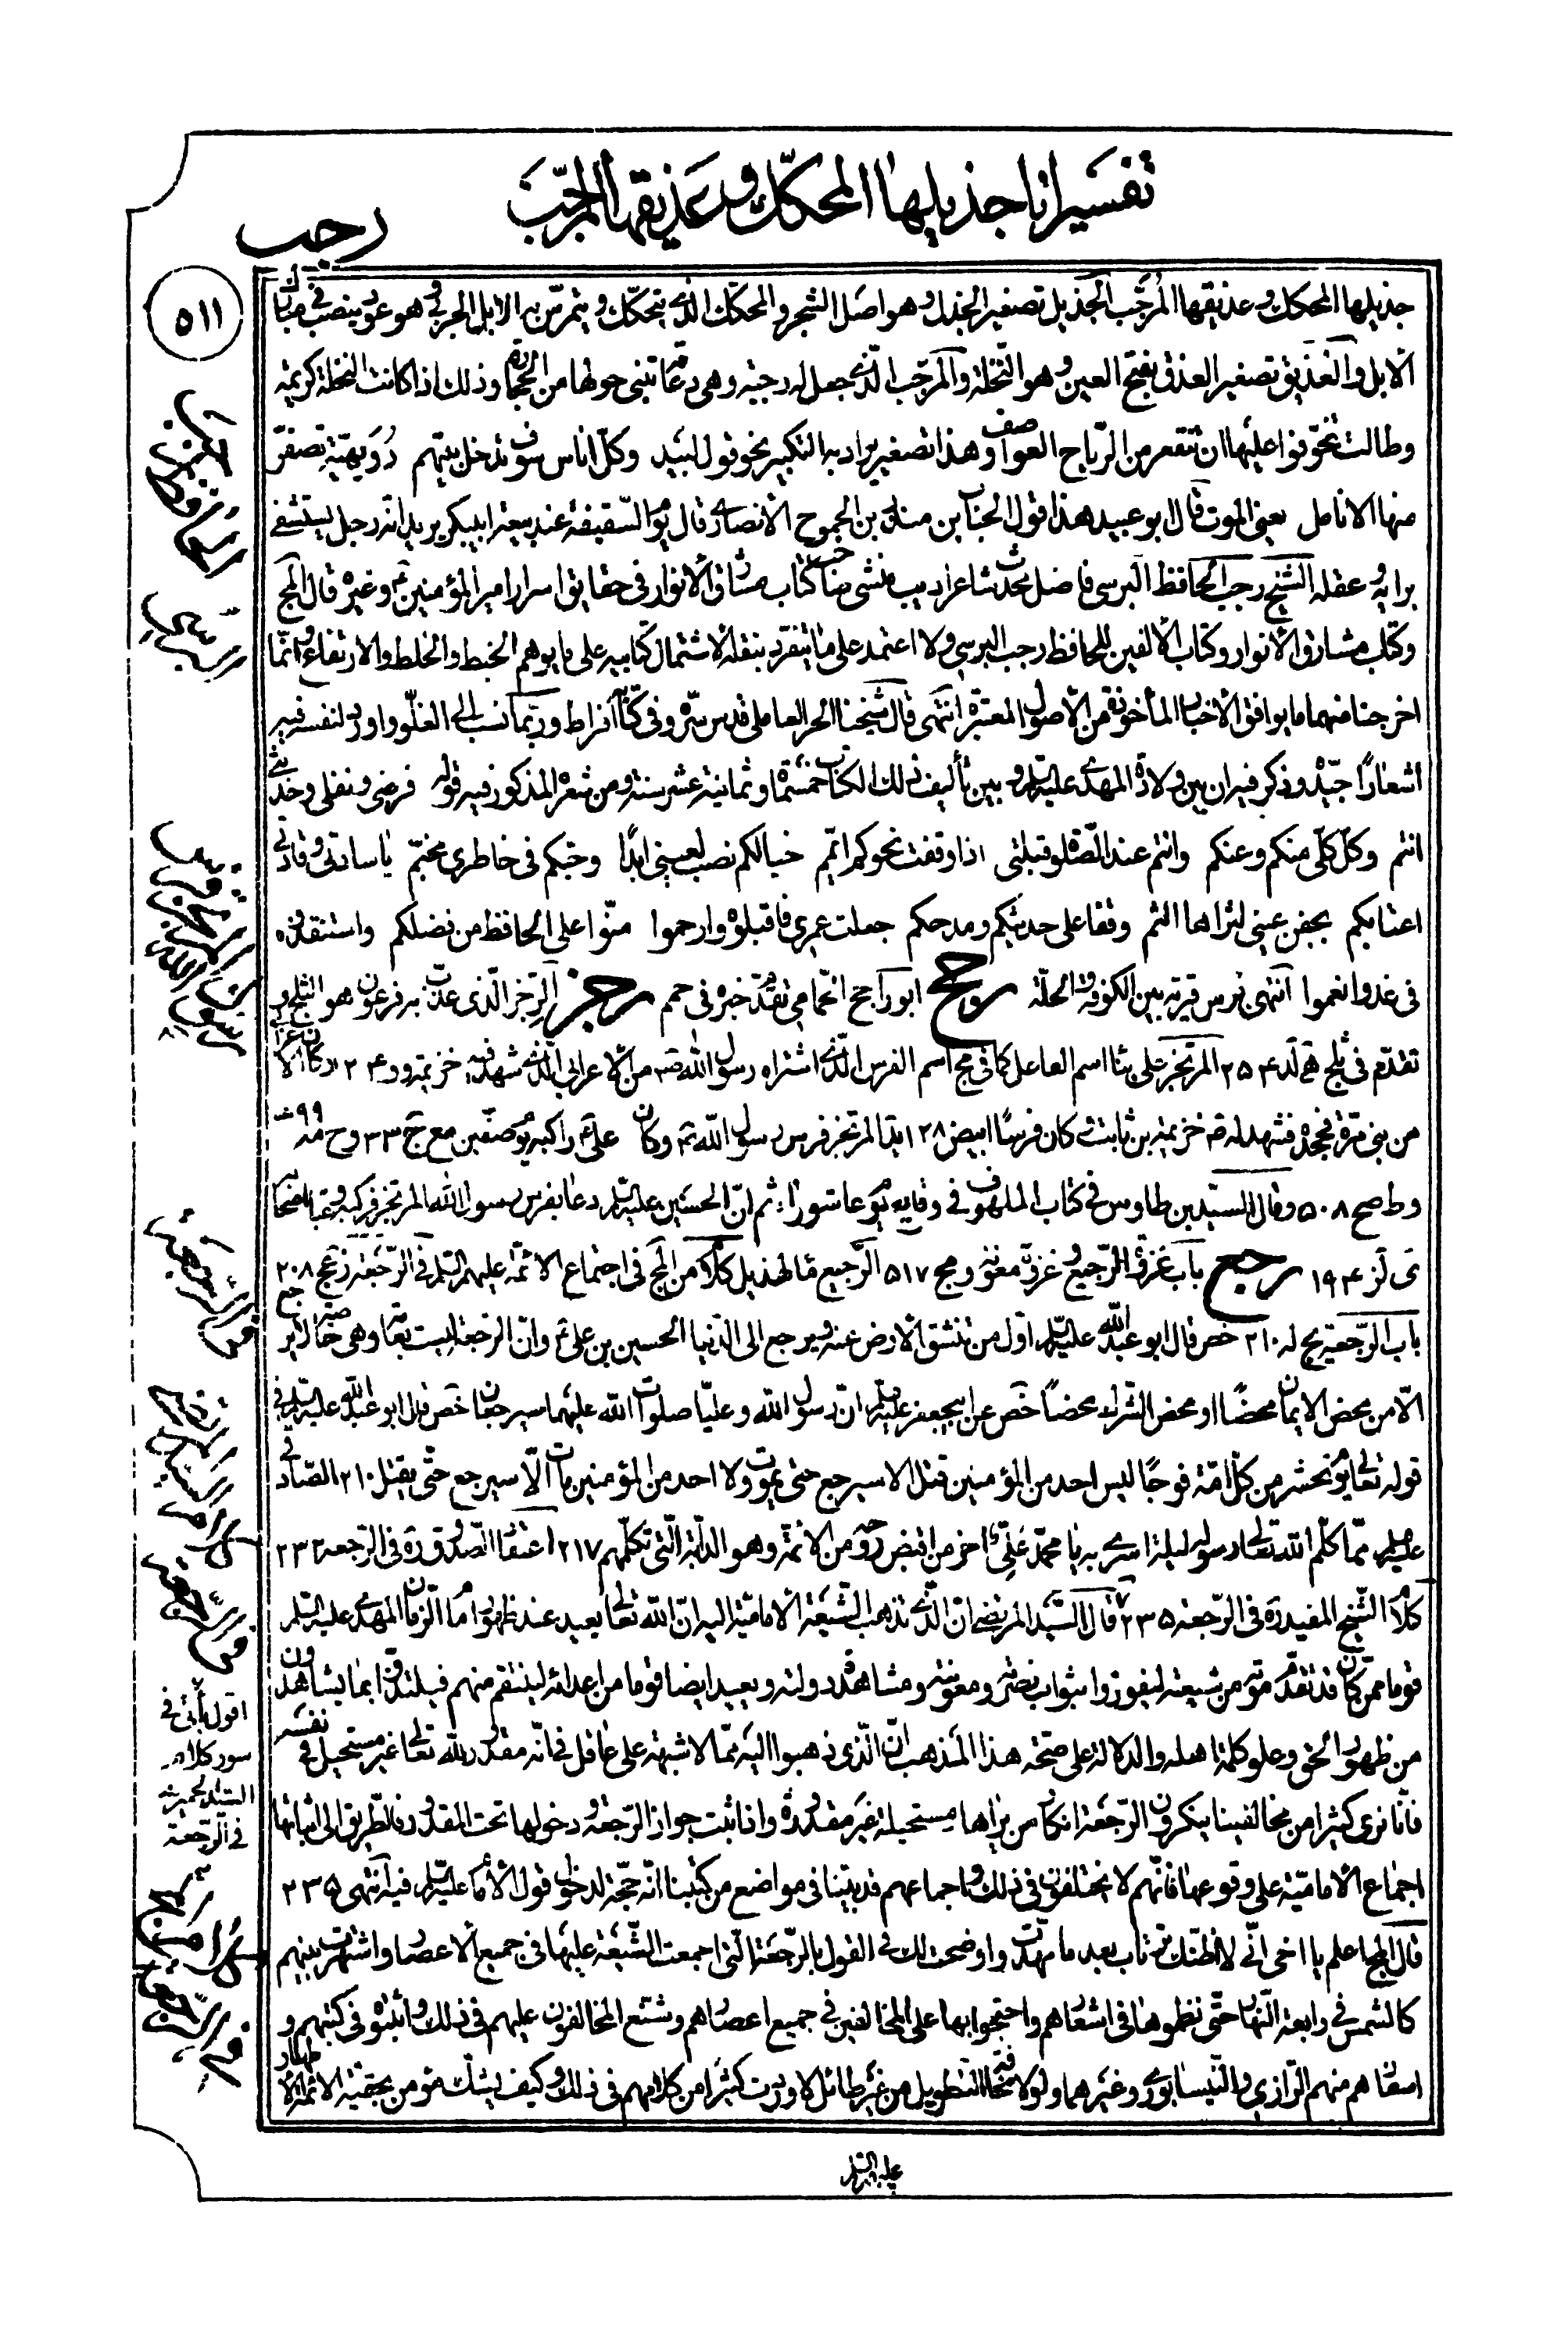 تفسير انا جذيلها المحكّك وعذيقها المرجّب
رجب
٥١١
جذيلها المحكك وعذيقها المُرجَّب الجذيل تصغير الجذل وهو اصل الشجر والمحكك الذى يتحكّك ويتمرّس به الابل الجربى وهو عود ينصب فى مبارك
الابل والعُذَيق تصغير العذق بفتح العين وهو النّخلة والمرجّب الّذى جعل له رجبة وهى دعامة تبنى حولها من الحجارة وذلك اذا كانت النخلة كريمة
وطالت تخوّفوا عليها ان تنقعر من الرّياح العواصف وهذا تصغير يراد به التكبير نحو قول لبيد وكلّ اناس سوف تدخل بينهم دُوَيهيّة تصفرّ
منها الانامل يعنى الموت قال ابو عبيد هذا قول الحباب بن منذر بن الجموح الانصارى قال يوم السّقيفة عند بيعة ابيبكر يريد انه رجل يستشفى
برايه وعقله الشيخ رجب الحافظ البرسى فاضل محدّث شاعر اديب منشى صاحب كتاب مشارق الانوار فى حقايق اسرار امير المؤمنين ع وغيره قال المج
وكتاب مشارق الانوار وكتاب الالفين للحافظ رجب البرسى ولا اعتمد على ما يتفرّد بنقله لاشتمال كتابيه على ما يوهم الخبط والخلط والارتفاع وانّما
اخرجنا منهما ما يوافق الاخبار المأخوذة من الاصول المعتبرة انتهى قال شيخنا الحر العاملى قدس سرّه وفى كتابه افراط وربّما نسب الى الغلّو واورد لنفسه فيه
اشعارًا جيّدة وذكر فيه ان بين ولادة المهدى عليه السلام وبين تأليف ذلك الكتاب خمسمائة وثمانية عشر سنة ومن شعره المذكور فيه قوله فرضى ونفلى وحديثى
انتم وكلّ كلّى منكم وعنكم وانتم عند الصّلوة قبلتى اذا وقفت نحوكم اتيمّم خيالكم نصب لعينى ابدًا وحبّكم فى خاطرى مخيّم يا سادتى وقادتى
اعتابكم بجفن عينى لثراها الثم وقفا على حديثكم ومدحكم جعلت عمرى فاقبلوه وارحموا منّوا على الحافظ من فضلكم واستنقذوه
فى غد وانعموا انتهى برس قرية بين الكوفة والحلّة رجح ابو راجح الحمّامى تقدّم خبره فى حمم رجز الرّجز الّذى عذّب به فرعون هو الثلج و
تقدّم فى ثلج المرتجز على بناء اسم الفاعل كما فى مج اسم الفرس الّذى اشتراه رسول الله ص من الاعرابى الّذى شهد فيه خزيمة
من بنى مرّة فجحده فشهد له خزيمة بن ثابت كان فرسًا ابيض ١٢٨ المرتجز فرس رسول الله وكان علىّ ع راكبه يوم صفّين
وط صح ٥٠٨ وقال السيّد بن طاوس فى كتاب الملهوف فى وقايع يوم عاشورا ثم انّ الحسين عليه السلام دعا بفرس رسول الله المرتجز فركبه وعبّا اصحابه
ى لز ١٩٤ رجع باب غزوة الرّجيع وغزوة معونة و مج ٥١٧ الرّجيع ماء لهذيل كلام المج فى اجتماع الائمّة عليهم السلام فى الرّجعة ٢٠٨
باب الرّجعة يج له ٢١٠ خص قال ابو عبد الله عليه السلام اوّل من تنشق الارض عنه ويرجع الى الدّنيا الحسين بن علىّ ع وانّ الرجعة ليست بعامّة وهى خاصّة لا يرجع
الّا من محض الايمان محضًا او محض الشّرك محضًا خص عن ابيجعفر عليه السلام انّ رسول الله وعليًّا صلوات الله عليهما سيرجعان خص قال ابو عبد الله عليه السلام فى
قوله تعالى يوم نحشر من كلّ امّة فوجًا ليس احد من المؤمنين قتل الا سيرجع حتى يموت ولا احد من المؤمنين مات الّا سيرجع حتّى يقتل ٢١٠ الصّادق
عليه السلام ممّا كلّم الله تعالى رسوله ليلة اسرى به يا محمّد علىّ اخر من اقبض روحه من الائمّة وهو الدابّة الّتى تكلّمهم ٢١٧ اعتقاد الصّدوق ره فى الرّجعة ٢٣٢
كلام الشّيخ المفيد ره فى الرّجعة ٢٣٥ قال السّيّد المرتضى انّ الّذى تذهب الشّيعة الاماميّة اليه انّ الله تعالى يعيد عند ظهور امام الزّمان المهدى عليه السلام
قوما ممّن كان قد تقدّم موته من شيعته ليفوزوا بثواب نصرته ومعونته ومشاهدة دولته ويعيد ايضا قوما من اعدائه لينتقم منهم فيلتذوا بما يشاهدون
من ظهور الحق وعلو كلمة اهله والدلالة على صحّة هذا المذهب انّ الّذى ذهبوا اليه ممّا لا شبهة على عاقل فى انّه مقدور لله تعالى غير مستحيل فى نفسه
فانّا نرى كثيرا من مخالفينا ينكرون الرّجعة انكار من يراها مستحيلة غير مقدورة واذا ثبت جواز الرّجعة ودخولها تحت المقدور فالطّريق الى اثباتها
اجماع الاماميّة على وقوعها فانّهم لا يختلفون فى ذلك واجماعهم قد بيّنا فى مواضع من كتبنا انّه حجّة لدخول قول الامام عليه السلام فيه انتهى ٢٣٥
قال المج اعلم يا اخى انّى لا اظنّك ترتاب بعد ما مهّدت واوضحت لك فى القول بالرّجعة الّتى اجمعت الشّيعة عليها فى جميع الاعصار واشتهرت بينهم
كالشمس فى رابعة النّهار حتّى نظموها فى اشعارهم واحتجّوا بها على المخالفين فى جميع اعصارهم وشنّع المخالفون عليهم فى ذلك واثبتوه فى كتبهم و
اسفارهم منهم الرّازى والنّيسابورى وغيرهما ولولا مخافة التطويل من غير طائل لاوردت كثيرا من كلماتهم فى ذلك وكيف يشكّ مؤمن بحقيّة الائمة الاطهار
اقول يأتى فى
سور كلام
السّيّد الحميرى
فى الرّجعة
عليهم السلام